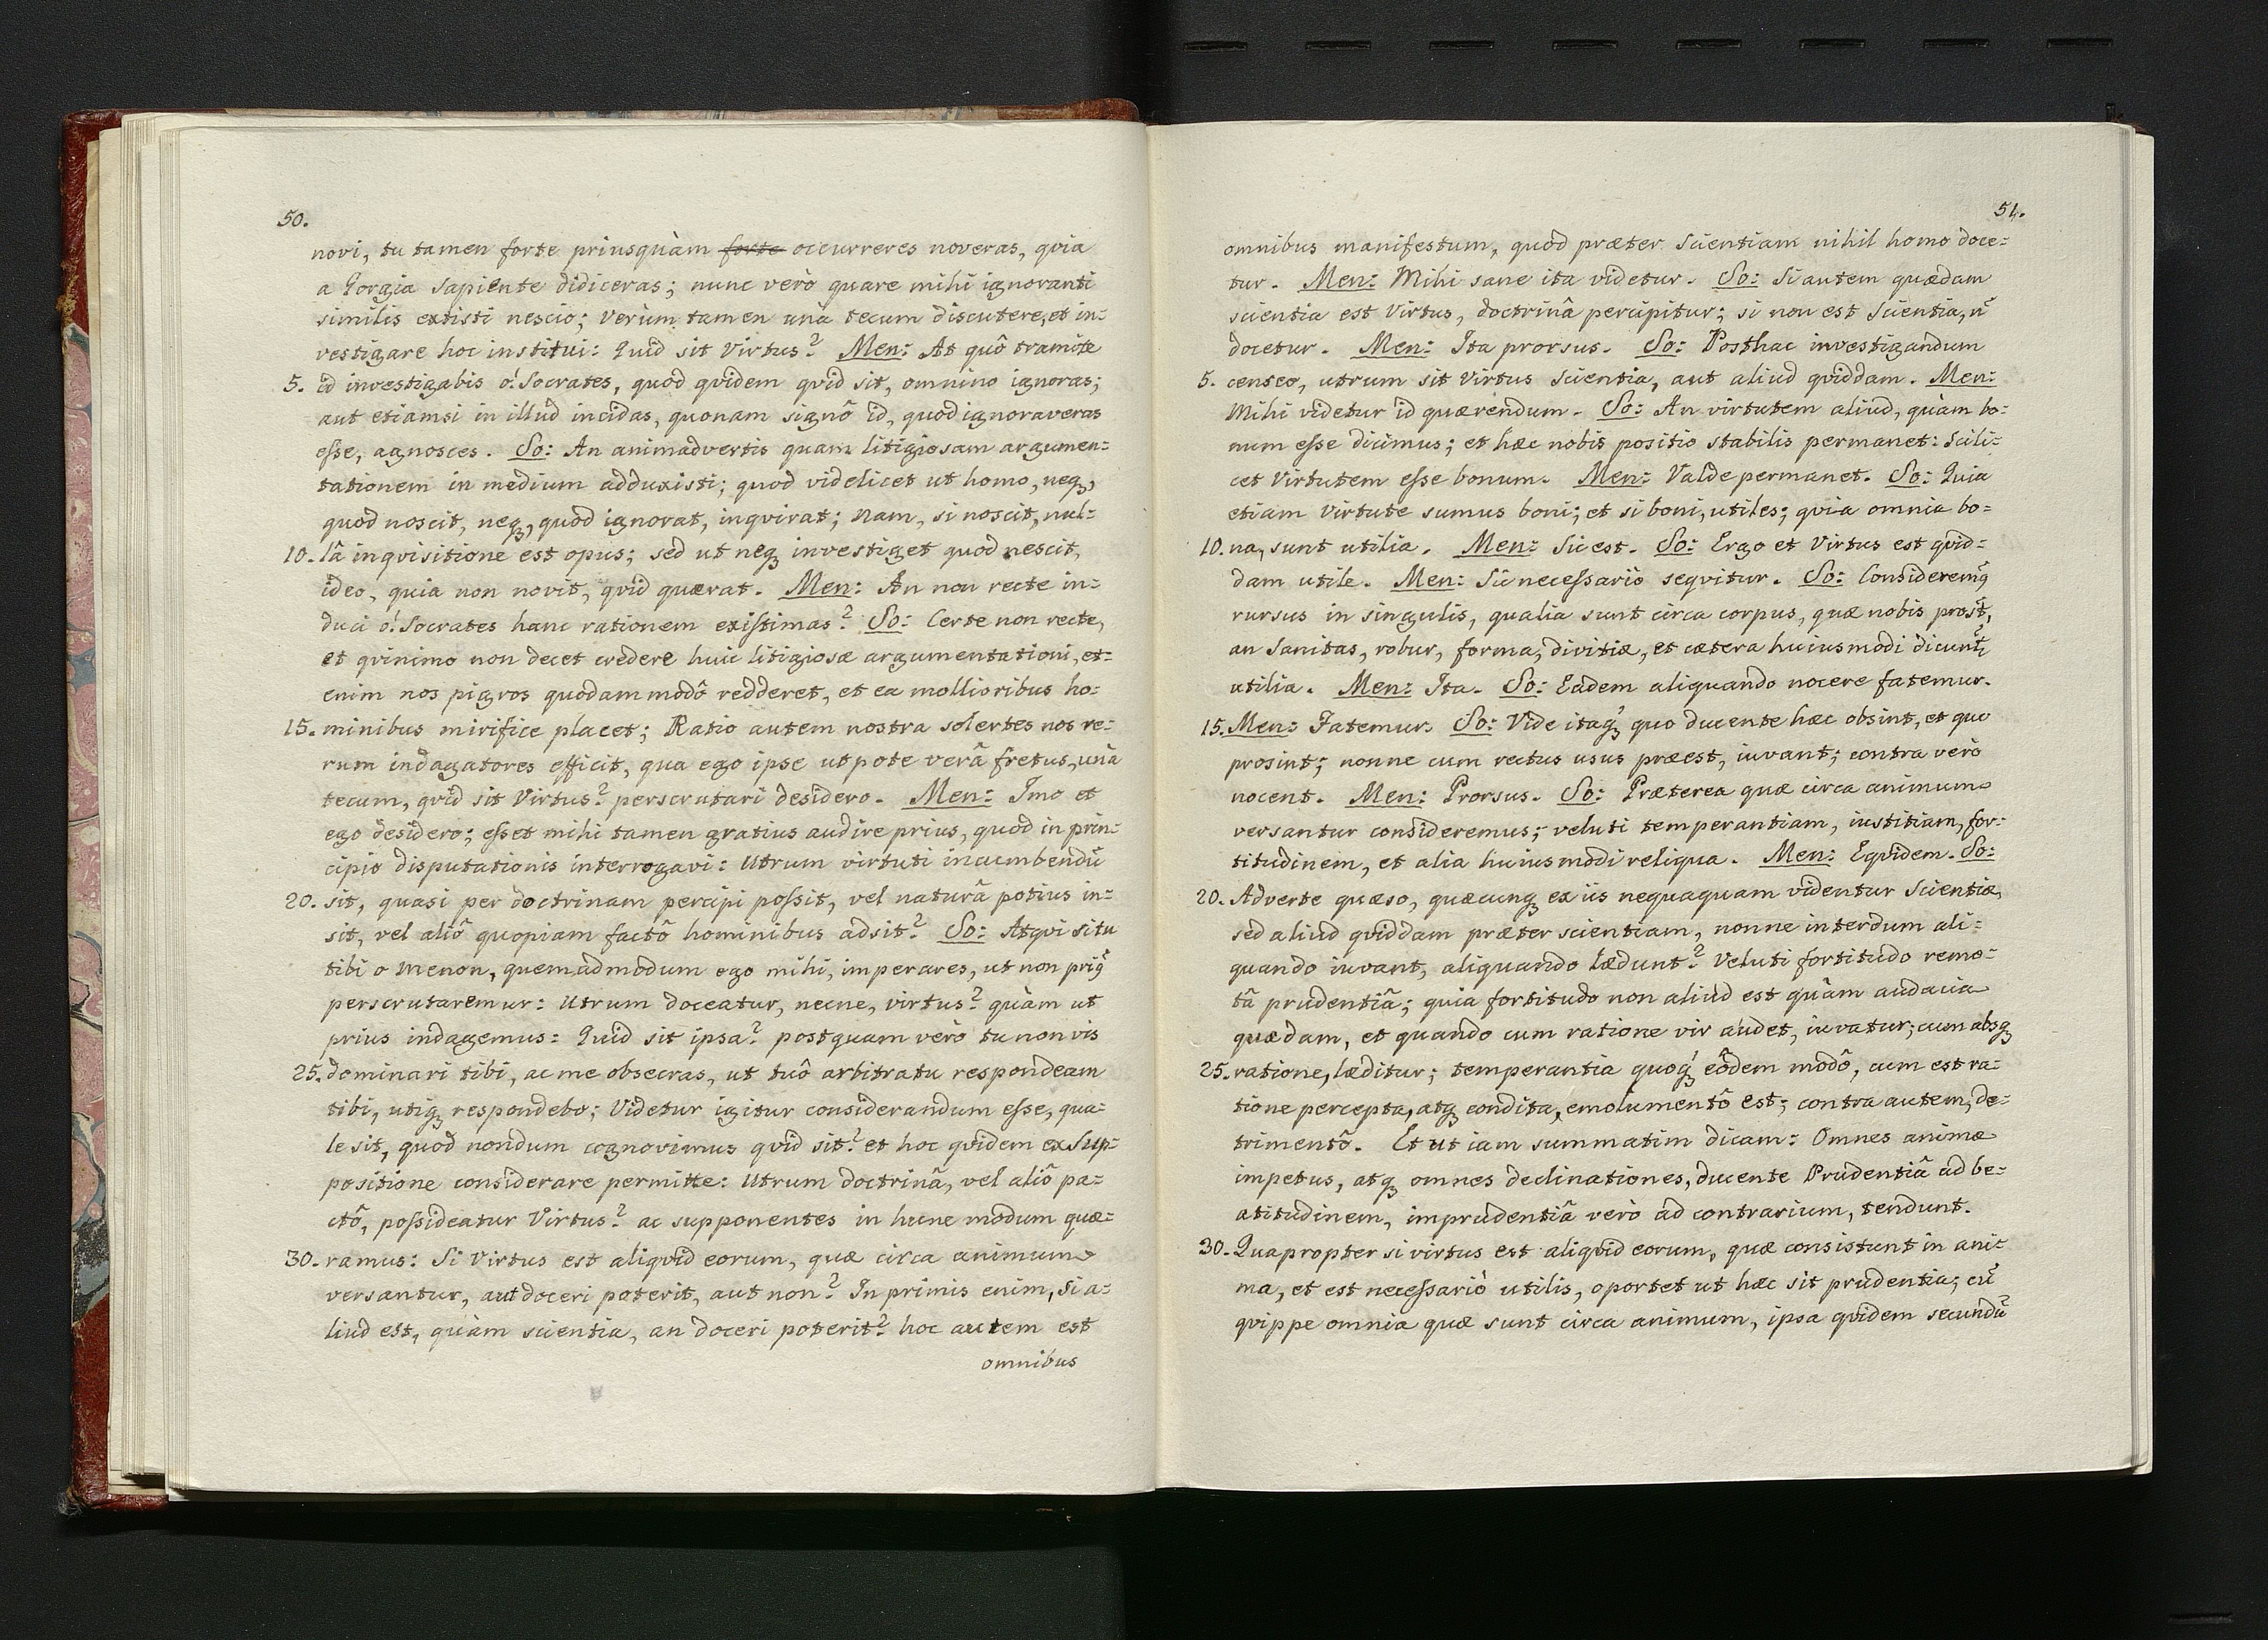 50.
novi, tu tamen forte priusquàm forte occurreres noveras, qvia
a Gorgia sapiente didiceras; nunc verò quare mihi ignoranti
similis extisti nescio; Verùm tamen unà tecum discutere, et in-
vestigare hoc institui: Quid sit Virtus? Men: At quô tramite
5. id investigabis o! Socrates, quod qvidem qvid sit, omnino ignoras;
aut etiamsi in illud incidas, quonam signô id, quod ignoraveras
esse, agnosces. So: An animadvertis quam litigiosam argumen-
tationem in medium adduxisti; quod videlicet ut homo, neqꝫ,
quod noscit, neqꝫ, quod ignorat, inqvirat; Nam, si noscit, nul-
10. lâ inqvisitione est opus; sed ut neqꝫ investiget quod nescit,
ideo, quia non novit, qvid quærat. Men: An non recte in-
duci o! Socrates hanc rationem existimas? So: Certe non recte,
et qvinimo non decet credere huic litigiosæ argumentationi, et-
enim nos pigros quodammodô redderet, et ea mollioribus ho-
15. minibus mirifice placet; Ratio autem nostra solertes nos re-
rum indagatores efficit, qua ego ipse utpote verâ fretus, unà
tecum, qvid sit Virtus? perscrutari desidero. Men: Imo et
ego desidero; esset mihi tamen gratius audire prius, quod in prin-
cipio disputationis interrogavi: Utrum virtuti incumbendũ
20. sit, quasi per doctrinam percipi possit, vel naturâ potius in-
sit, vel aliô quopiam factô hominibus adsit? So: Atqvi si tu
tibi o Menon, quemadmodum ego mihi, imperares, ut non priꝰ
perscrutaremur: Utrum doceatur, necne, virtus? quàm ut
prius indagemus: Quid sit ipsa? postquam verò tu non vis
25. dominari tibi, ac me obsecras, ut tuô arbitratu respondeam
tibi, utiqꝫ respondebo; Videtur igitur considerandum esse, qua-
le sit, quod nondum cognovimus qvid sit? et hoc qvidem ex Sup-
positione considerare permitte: Utrum doctrinâ, vel aliô pa-
ctô, possideatur Virtus? ac supponentes in hunc modum quæ-
30. ramus: Si Virtus est aliqvid eorum, quæ circa animum
versantur, aut doceri poterit, aut non? In primis enim, si a-
liud est, quàm scientia, an doceri poterit? hoc autem est
omnibus
51.
omnibus manifestum, quod præter scientiam nihil homo doce-
tur. Men: Mihi sane ita videtur. So: Si autem quædam
scientia est Virtus, doctrinâ percipitur; si non est Scientia, ñ
docetur. Men: Ita prorsus. So: Posthac investigandum
5. censeo, utrum sit Virtus Scientia, aut aliud qviddam. Men:
Mihi videtur id quærendum. So: An virtutem aliud, quàm bo-
num esse dicimus; et hæc nobis positio stabilis permanet: Scili-
cet Virtutem esse bonum. Men: Valde permanet. So: Quia
etiam Virtute sumus boni; et si boni, utiles; qvia omnia bo-
10. na, sunt utilia. Men: Sic est. So: Ergo et Virtus est qvid-
dam utile. Men: Sic necessariò seqvitur. So: Consideremꝰ
rursus in singulis, qualia sunt circa corpus, quæ nobis prosт̃,
an Sanitas, robur, forma, divitiæ, et cætera huiusmodi dicunt̃
utilia. Men: Ita. So: Eadem aliquando nocere fatemur.
15. Men: Fatemur. So: Vide itaqꝫ quo ducente hæc obsint, et quo
prosint; nonne cum rectus usus præest, iuvant; contra verò
nocent. Men: Prorsus. So: Præterea quæ circa animum
versantur consideremus; veluti temperantiam, iustitiam, for-
titudinem, et alia huiusmodi reliqua. Men: Eqvidem. So:
20. Adverte quæso, quæcunqꝫ ex iis nequaquam videntur Scientiæ,
sed aliud qviddam præter scientiam, nonne interdum ali-
quando iuvant, aliquando lædunt? Veluti fortitudo remo-
tâ prudentiâ; quia fortitudo non aliud est quàm audacia
quædam, et quando cum ratione vir audet, iuvatur; cum absqꝫ
25. ratione, læditur; temperantia quoqꝫ eôdem modô, cum est ra-
tione percepta, atqꝫ condita, emolumentô est; contra autem, de-
trimentô. Et ut iam summatim dicam: Omnes animæ
impetus, atqꝫ omnes declinationes, ducente Prudentiâ ad be-
atitudinem, imprudentiâ verò ad contrarium, tendunt.
30. Quapropter si virtus est aliqvid eorum, quæ consistunt in ani-
ma, et est necessariò utilis, oportet ut hæc sit prudentia; cũ
qvippe omnia quæ sunt circa animum, ipsa qvidem secundũ